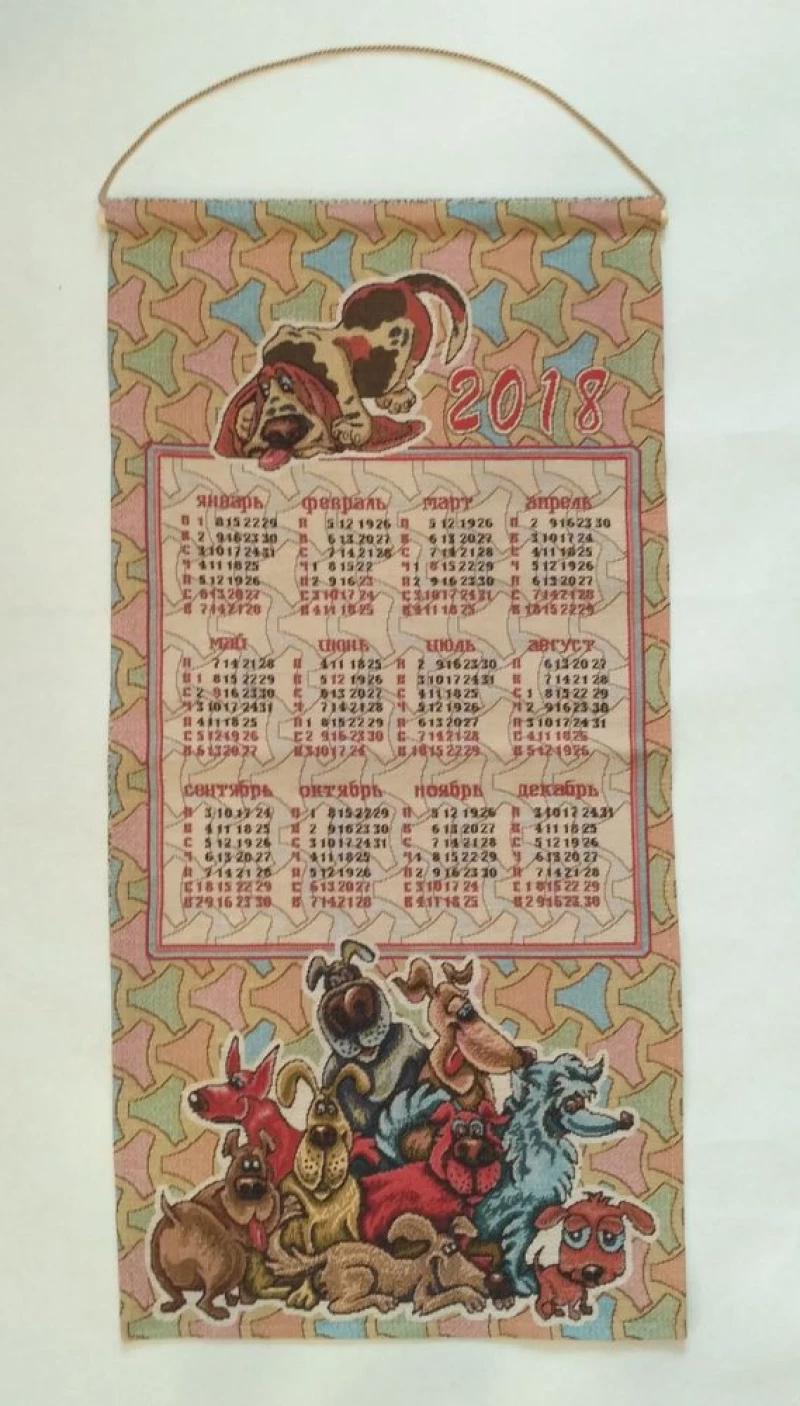 2018
январь февраль март апрель
П 1 8 15 22 29 П 5 12 19 26 П 5 12 19 26 П 2 9 16 23 30
В 2 9 16 23 30 В 6 13 20 27 В 6 13 20 27 В 3 10 17 24
С 3 10 17 24 31 С 7 14 21 28 С 7 14 21 28 С 4 11 18 25
Ч 4 11 18 25 Ч 1 8 15 22 Ч 1 8 15 22 29 Ч 5 12 19 26
П 5 12 19 26 П 2 9 16 23 П 2 9 16 23 30 П 6 13 20 27
С 6 13 20 27 С 3 10 17 24 С 3 10 17 24 31 С 7 14 21 28
В 7 14 21 28 В 4 11 18 25 В 4 11 18 25 В 1 8 15 22 29
май июнь июль август
П 7 14 21 28 П 4 11 18 25 П 2 9 16 23 30 П 6 13 20 27
В 1 8 15 22 29 В 5 12 19 26 В 3 10 17 24 31 В 7 14 21 28
С 2 9 16 23 30 С 6 13 20 27 С 4 11 18 25 С 1 8 15 22 29
Ч 3 10 17 24 31 Ч 7 14 21 28 Ч 5 12 19 26 Ч 2 9 16 23 30
П 4 11 18 25 П 1 8 15 22 29 П 6 13 20 27 П 3 10 17 24 31
С 5 12 19 26 С 2 9 16 23 30 С 7 14 21 28 С 4 11 18 25
В 6 13 20 27 В 3 10 17 24 В 1 8 15 22 29 В 5 12 19 26
сентябрь октябрь ноябрь декабрь
П 3 10 17 24 П 1 8 15 22 29 П 5 12 19 26 П 3 10 17 24 31
В 4 11 18 25 В 2 9 16 23 30 В 6 13 20 27 В 4 11 18 25
С 5 12 19 26 С 3 10 17 24 31 С 7 14 21 28 С 5 12 19 26
Ч 6 13 20 27 Ч 4 11 18 25 Ч 1 8 15 22 29 Ч 6 13 20 27
П 7 14 21 28 П 5 12 19 26 П 2 9 16 23 30 П 7 14 21 28
С 1 8 15 22 29 С 6 13 20 27 С 3 10 17 24 С 1 8 15 22 29
В 2 9 16 23 30 В 7 14 21 28 В 4 11 18 25 В 2 9 16 23 30